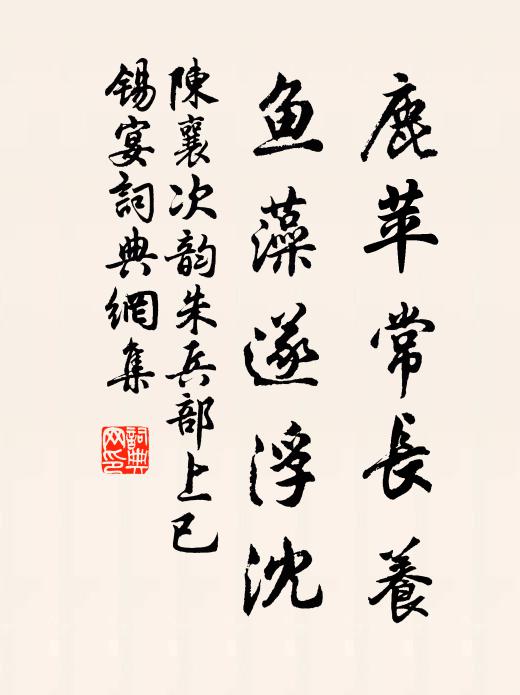 鹿苹常長養
魚藻遂浮沈
陳襄次韵朱兵部上巳
錫宴詞典網集
詞典网印